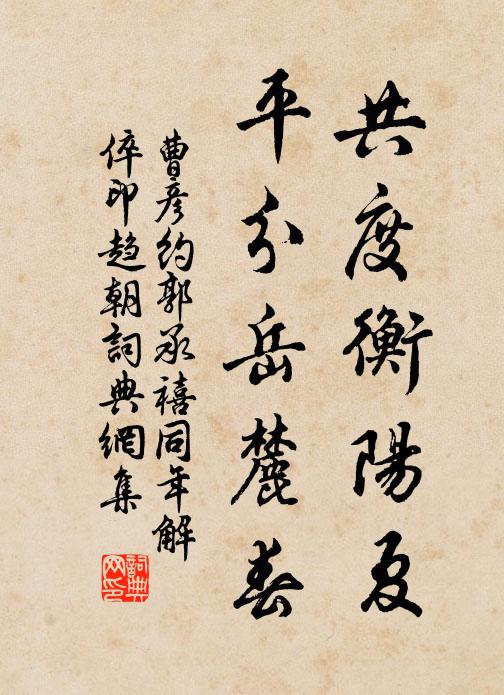 共度衡陽夏
平分岳麓春
曹彥約郭承禧同年解
倅印趨朝詞典網集
詞典网印